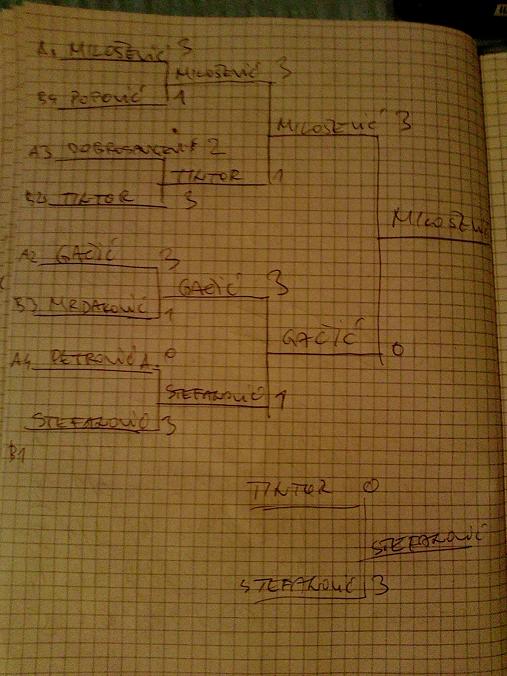 A1 MILOŠEVIĆ 3
MILOŠEVIĆ 3
B4 POPOVIĆ 1
MILOŠEVIĆ 3
A3 2
TINTOR 1
B2 TINTOR 3
MILOŠEVIĆ
A2 GAČIĆ 3
GAČIĆ 3
B3 MRDAKOVIĆ 1
GAČIĆ 0
A4 PETROVIĆ A. 0
STEFANOVIĆ 1
STEFANOVIĆ 3
B1
TINTOR 0
STEFANOVIĆ
STEFANOVIĆ 3